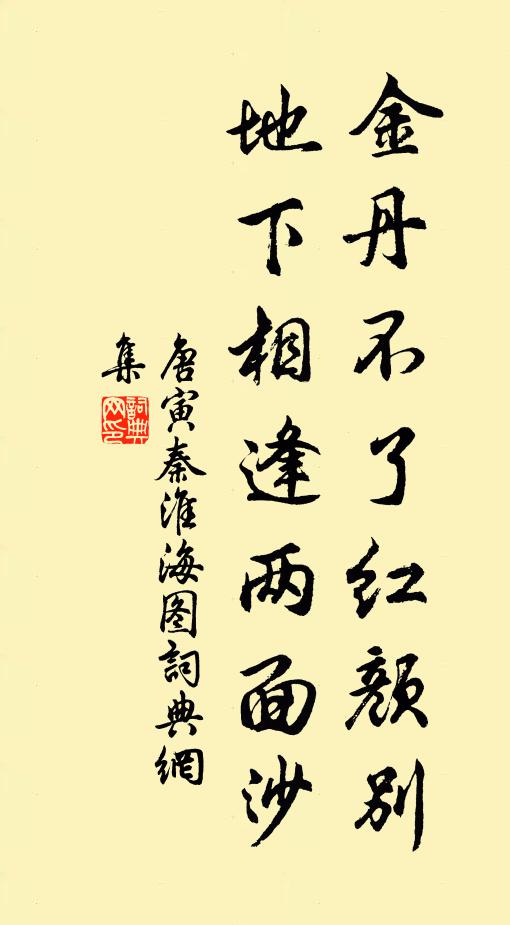 金丹不了红颜别
地下相逢两面沙
唐寅秦淮海图詞典網
集
詞典
网印